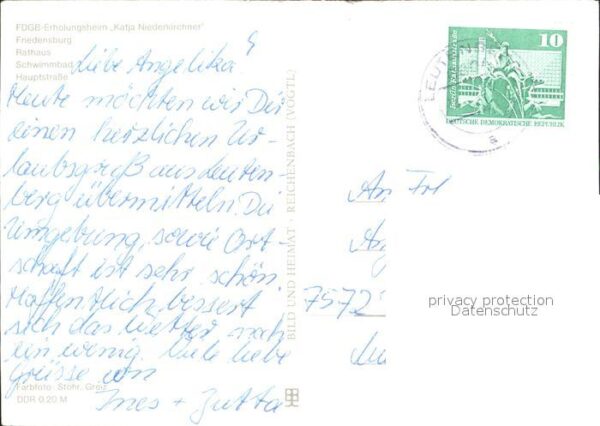 FDGB-Erholungsheim „Katja Niederkirchner"
Friedensburg
Rathaus
Schwimmbad
Hauptstraße
Liebe Angelika!
Heute möchten wir Dir
einen herzlichen Ur-
laubsgruß aus Leuten-
berg übermitteln. Die
Umgebung, sowie Ort-
schaft ist sehr schön.
Hoffentlich bessert
sich das Wetter noch
ein wenig. Viele liebe
Grüsse von
Ines + Jutta
Farbfoto: Stöhr, Greiz
DDR 0,20 M
BILD UND HEIMAT · REICHENBACH (VOGTL)
10
DEUTSCHE DEMOKRATISCHE REPUBLIK
LEUTEN
An Frl
7572
privacy protection
Datenschutz